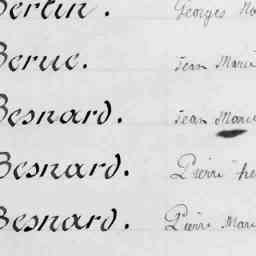 Bertin. Georges
Berue. Jean Marie
Besnard. Jean Marie
Besnard. Pierre
Besnard. Pierre Marie